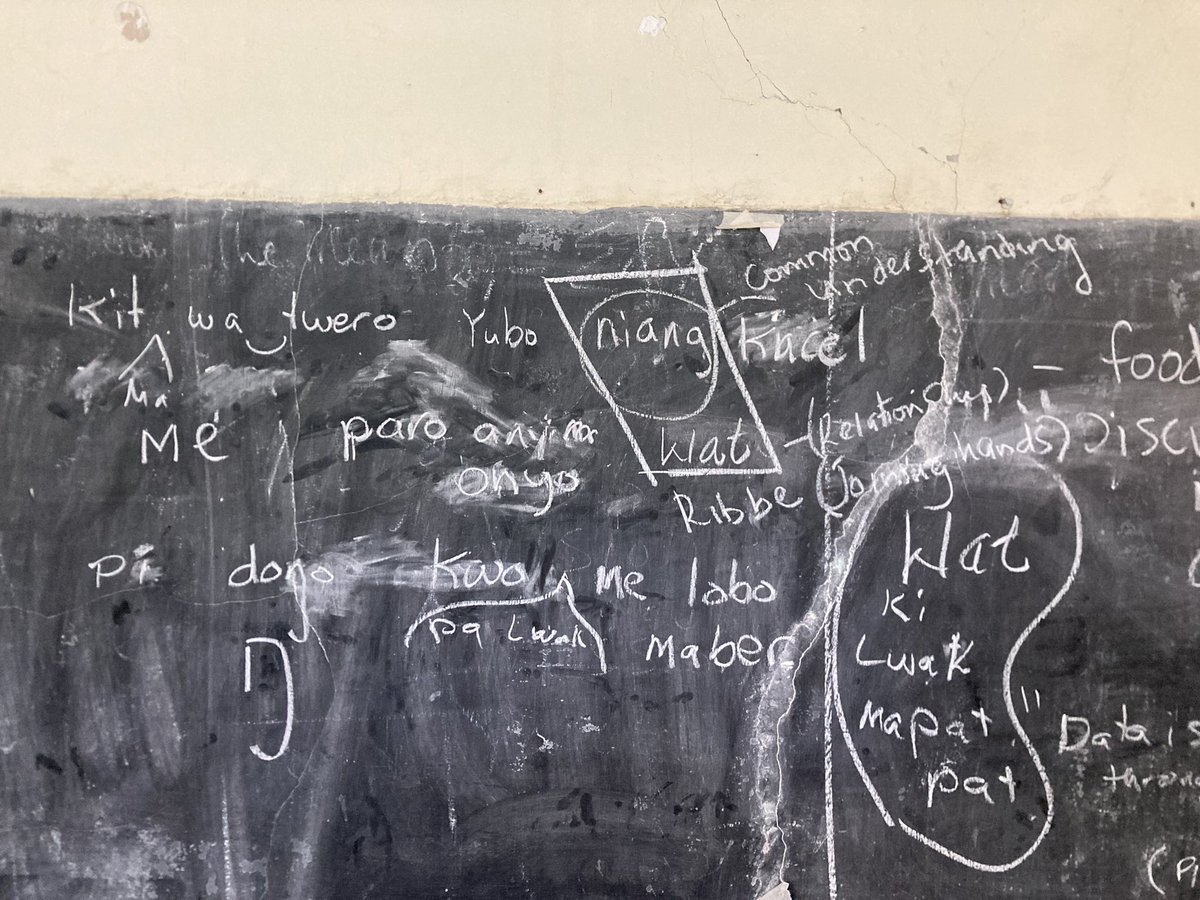 common
understanding
Kit wa twero Yubo niang Kacel
Ma
Mé paro
Wat - (Relationship), - food
Ribbe (Joining hands) Disc
Onyo
pi doŋo Kwo Me lobo
pa Lwak
maber
ŋ
Wat
Ki
Lwak
Mapat
pat
" Data is
throu